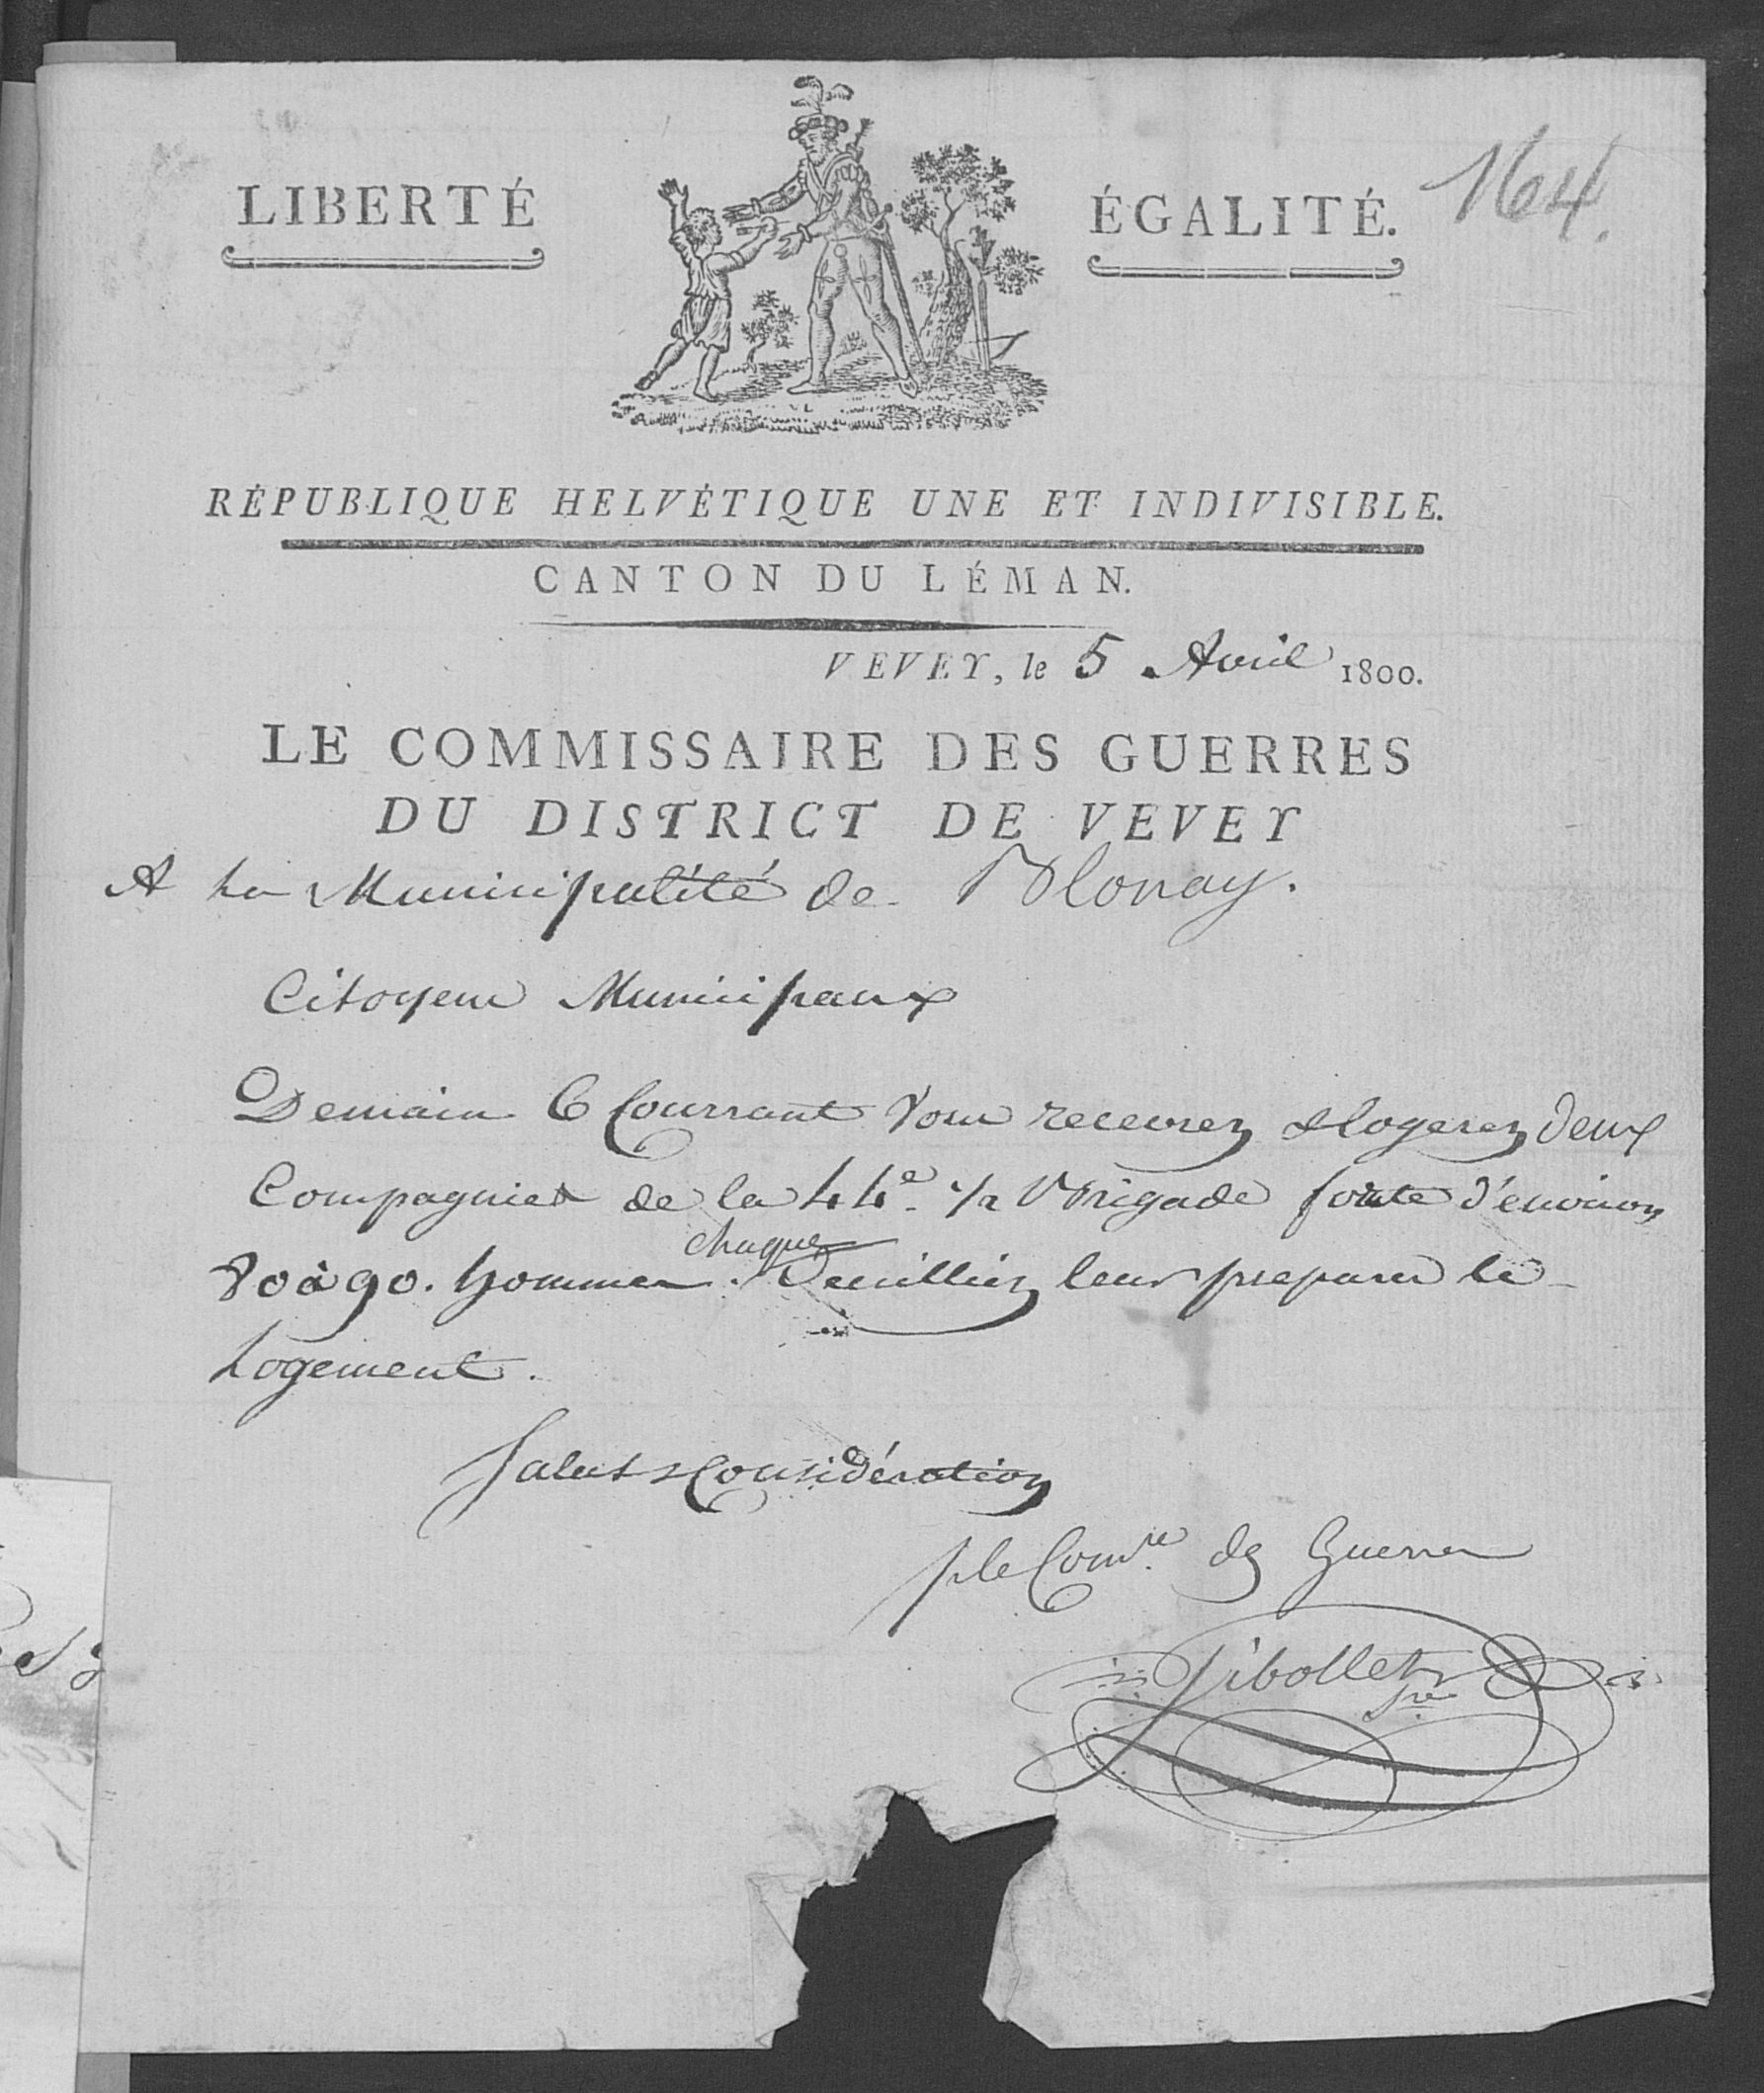 LIBERTÉ ÉGALITÉ. 164.
RÉPUBLIQUE HELVÉTIQUE UNE ET INDIVISIBLE.
CANTON DU LÉMAN.
VEVEY, le 5 Avril 1800.
LE COMMISSAIRE DES GUERRES
DU DISTRICT DE VEVEY
A la Municipalité de Blonay.
Citoyens Municipaux
Demain 6 Courrant Vous recevrez & logerez deux
Compagnies de la 44e. 1/2 Brigade forte d'environ
chaque
80 à 90. hommes. Veuilliez leur preparer le
Logement.
Salut & Considération
p le Comre. des Guerres
Pibollet